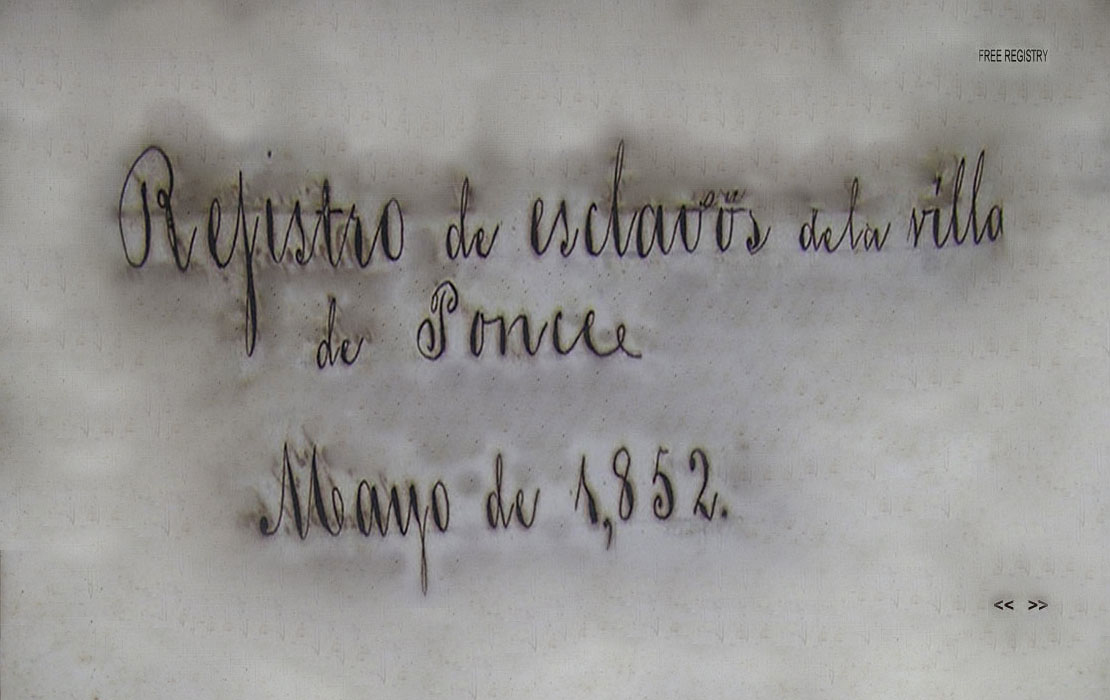 FREE REGISTRY
Rejistro de esclavos dela villa
de Ponce
Mayo de 1,852.
<< >>